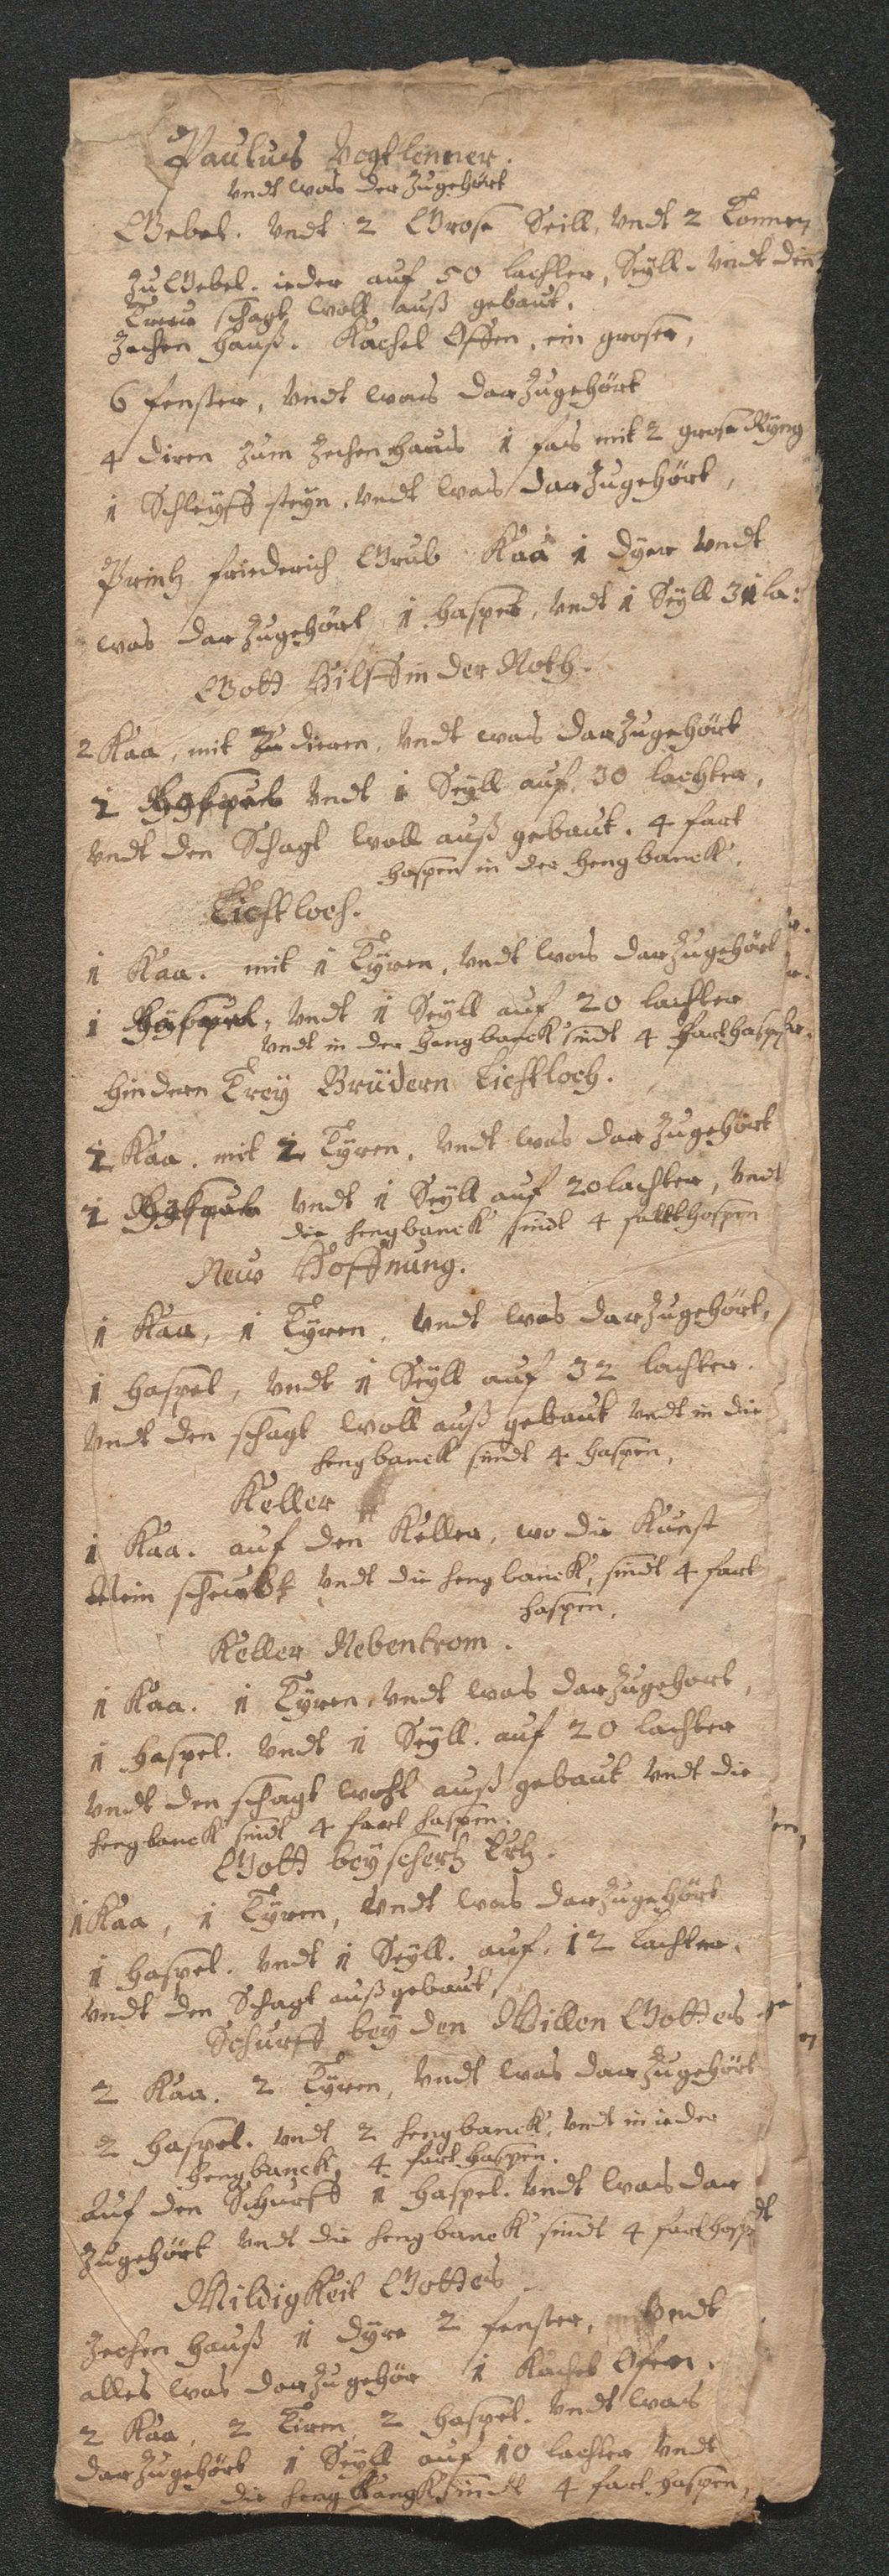 Paulus Vogtlenner.
vndt was der Zugehört
Gebel. vndt 2 Grose Seill, vndt 2 Tonnen
zu Gebel. ieder auf 50 lachter, Seyll. vndt den
schagt woll auß gebaut.
Zechen hauß. Kachel Offen, ein groser,
6 fenster, vndt was darzugehört
4 diren zum Zechenhaus 1 fas mit 2 grose Ryng
1 Schleyff steyn. vndt was darzugehört,
Printz friederich Grub Kaa 1 dyer vndt
was darzugehört 1 haspel, vndt 1 Seyll 31 la:
Gott Hilff in der Noth.
2 Kaa, mit Zu dieren, vndt was darzugehört
1 vndt 1 Seyll auf 30 lachter,
vndt den Schagt woll auß gebaut. 4 fart
haspen in der hengbanck.
Lichtloch.
1 Kaa. mit 1 Tyren, vndt was darzugehört
1 vndt 1 Seyll auf 20 lachter
vndt in der hengbanck sindt 4 farthaspen.
hindern Trey Brüdern Lichtloch.
1 Kaa. mit 1 Tyren, vndt was darzugehört
1 vndt 1 Seyll auf 20 lachter, vndt
die hengbanck sindt 4 farthaspen
New Hoffnung.
1 Kaa, 1 Tyren, vndt was darzugehört,
1 haspel, vndt 1 Seyll auf 32 lachter.
vndt den schagt woll auß gebaut vndt in die
hengbanck sindt 4 haspen,
Keller
1 Kaa. auf den Keller, wo die Kunst
vndt die hengbanck, sindt 4 fart
haspen,
Keller Nebentrom.
1 Kaa. 1 Tyren, vndt was darzugehort,
1 haspel. vndt 1 Seyll. auf 20 lachter
vndt den schagt wohl auß gebaut vndt die
hengbanck sindt 4 fart haspen.
Gott beyschertz Ertz.
1 Kaa, 1 Tyren, vndt was darzugehört
1 haspel. vndt 1 Seyll. auf. 12 Lachter.
vndt den Schagt auß gebaut,
Schurff bey den Willen Gottes
2 Kaa. 2 Tyren, vndt was darzugehört
2 haspel. vndt 2 hengbanck, vndt in ieder
hengbanck 4 fart haspen.
Auf den Schurff 1 haspel. vndt was dar
zugehört vndt die hengbanck sindt 4 farthasp
Mildigkeit Gottes
Zechen hauß 1 dyre 2 fenster, vndt
alles was darzugehör 1 Kachel Ofen.
2 Kaa, 2 Tiren 2 haspel. vndt was
darzugehört 1 Seyll auf 10 lachter vndt
die hengbangk sindt 4 fart haspen,